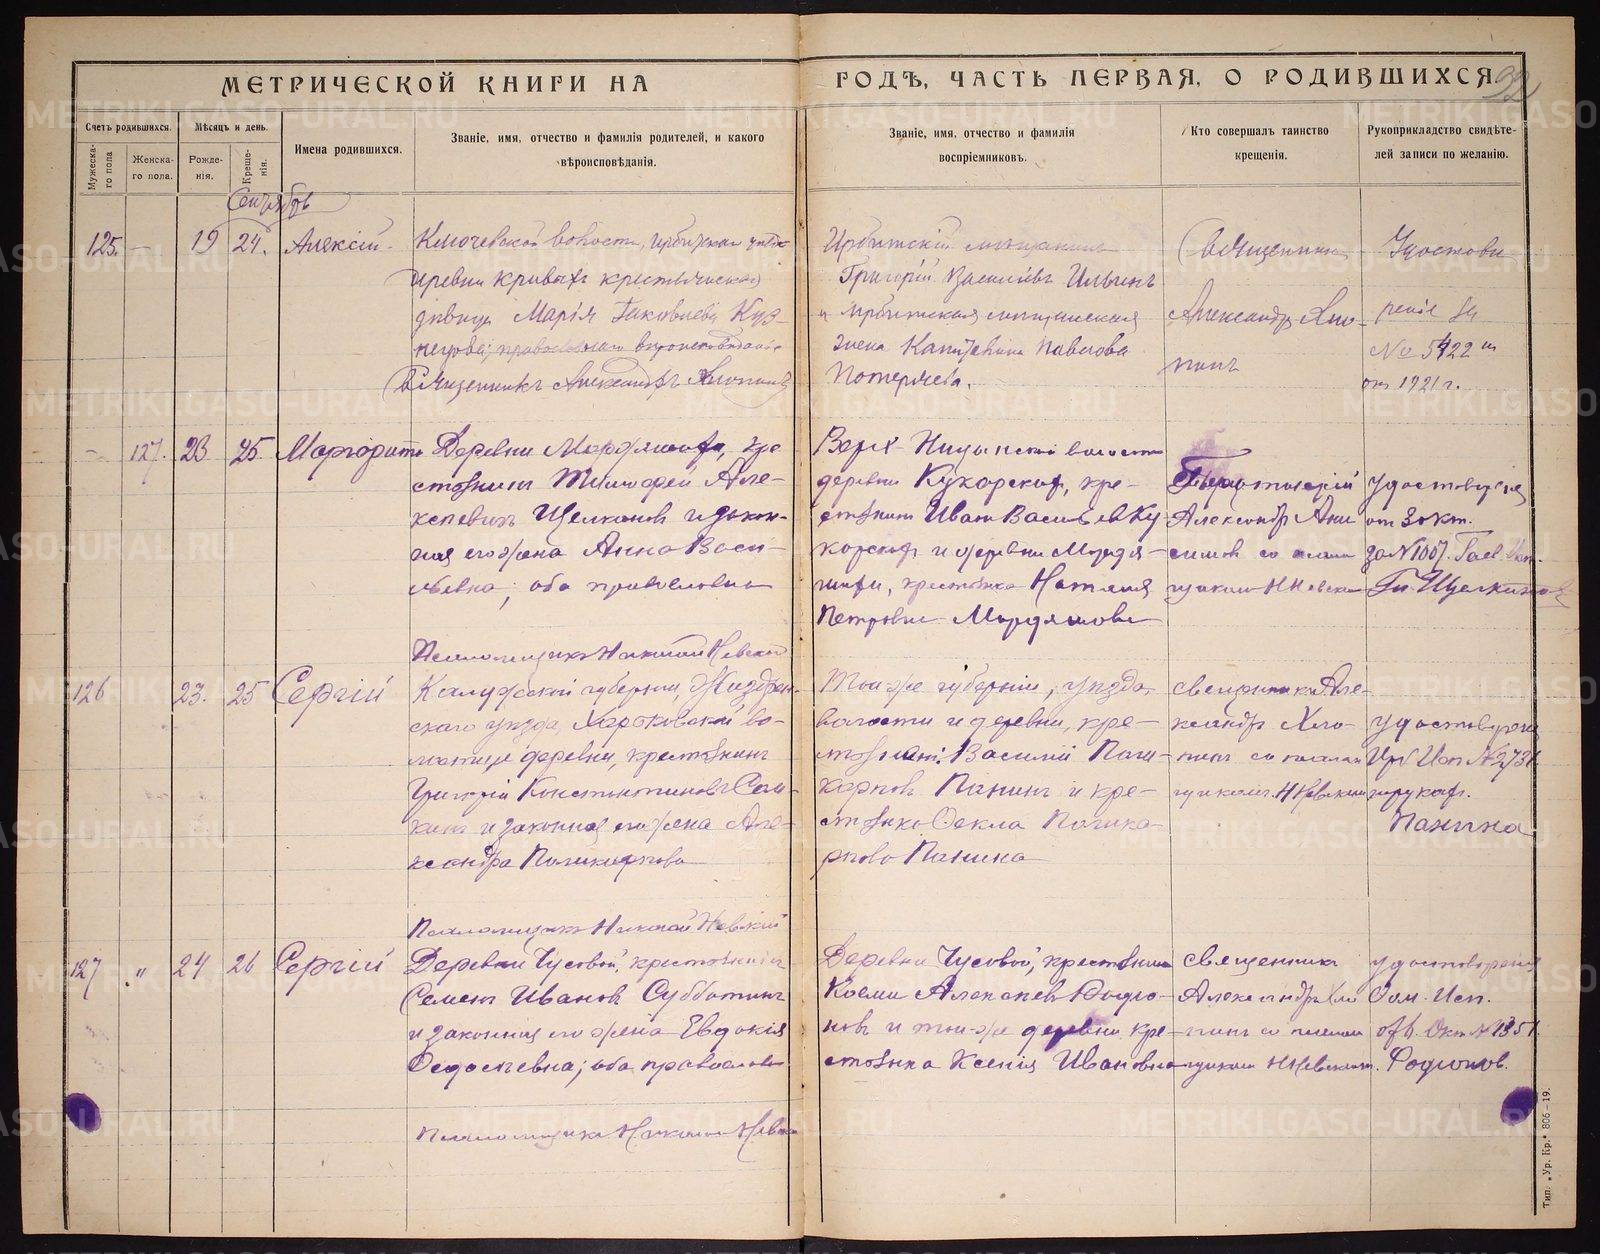 МЕТРИЧЕСКОЙ КНИГИ НА
ГОДЪ, ЧАСТЬ ПЕРВАЯ, О РОДИВШИХСЯ
92
Счетъ родившихся.
Мужеска-
го пола
Женска-
го пола.
Мѣсяцъ и день.
Рожде-
нія.
Креще-
нія.
Имена родившихся.
Званіе, имя, отчество и фамилія родителей, и какого
вѣроисповѣданія.
Званіе, имя, отчество и фамилія
воспріемниковъ.
Кто совершалъ таинство
крещенія.
Рукоприкладство свидѣте-
лей записи по желанію.
Сентябрь
125. 19 24. Алексій
Ключевской волости, Ирбитскаго
деревни Кривыхъ крестьянская
дѣвица Марія Іаковлева Куз-
нецова; православнаго вѣроисповѣданія
Священникъ Александръ Хлопинъ
Ирбитскій мѣщанинъ
Григорій Василіевъ Ильинъ
и Ирбитская мѣщанская
жена Капитолина Павлова
Потеряева.
Священникъ
Александръ Хло-
пинъ
Удостове
реніе за
№ 5422
от 1921 г.
127. 23 25 Маргарита
Деревни Мордяшиха, кре
стьянинъ Тимофей Але-
ксѣевичъ Щелканов и закон-
ная его жена Анна Васи-
льевна; оба православны
Псаломщикъ Николай Невскій
Верх-Ницынской волости
деревни Кухарской, кре-
стьянинъ Иван Васильев Ку-
харской и деревни Мордя-
шихи, крестьянка Наталия
Петровна Мордяшова
Протоиерій
Александръ Ани
симов со псалом
щиком Н Невским
удостоверение
от 3 окт.
за № 1007.
Щелканов
126 23. 25 Сергій
Калужской губерніи, Жиздрин-
скаго уезда, во-
лости деревни, крестьянинъ
Григорій Константиновъ Сем-
кинъ и законная его жена Але-
ксандра Поликарпова
Псаломщикъ Николай Невскій
Той-же губерніи, уезда,
волости и деревни, кре-
стьянинъ Василій Поли-
карповъ Панинъ и кре-
стьянка Фекла Полика-
рпова Панина
священникъ Але-
ксандръ Хло-
пинъ со псалом
щиком Н Невским
удостоверение
Ирб Исп № 2731
Панина
127 " 24 26 Сергій
Деревни Чусовой, крестьянинъ
Семенъ Ивановъ Субботинъ
и законная его жена Евдокія
Федосеевна; оба православны
Псаломщикъ Николай Невскій
Деревни Чусовой, крестьянин
Косма Алексеевъ Родіо-
новъ и той-же деревни кре-
стьянка Ксенія Ивановна
священникъ
Александръ Хло
пинъ со псалом
щиком Н Невским.
удостоверение
Исп.
от 6. Окт № 1351
Родионов.
Тип. „Ур. Кр." 806—19.
METRIKI.GASO-URAL.RU